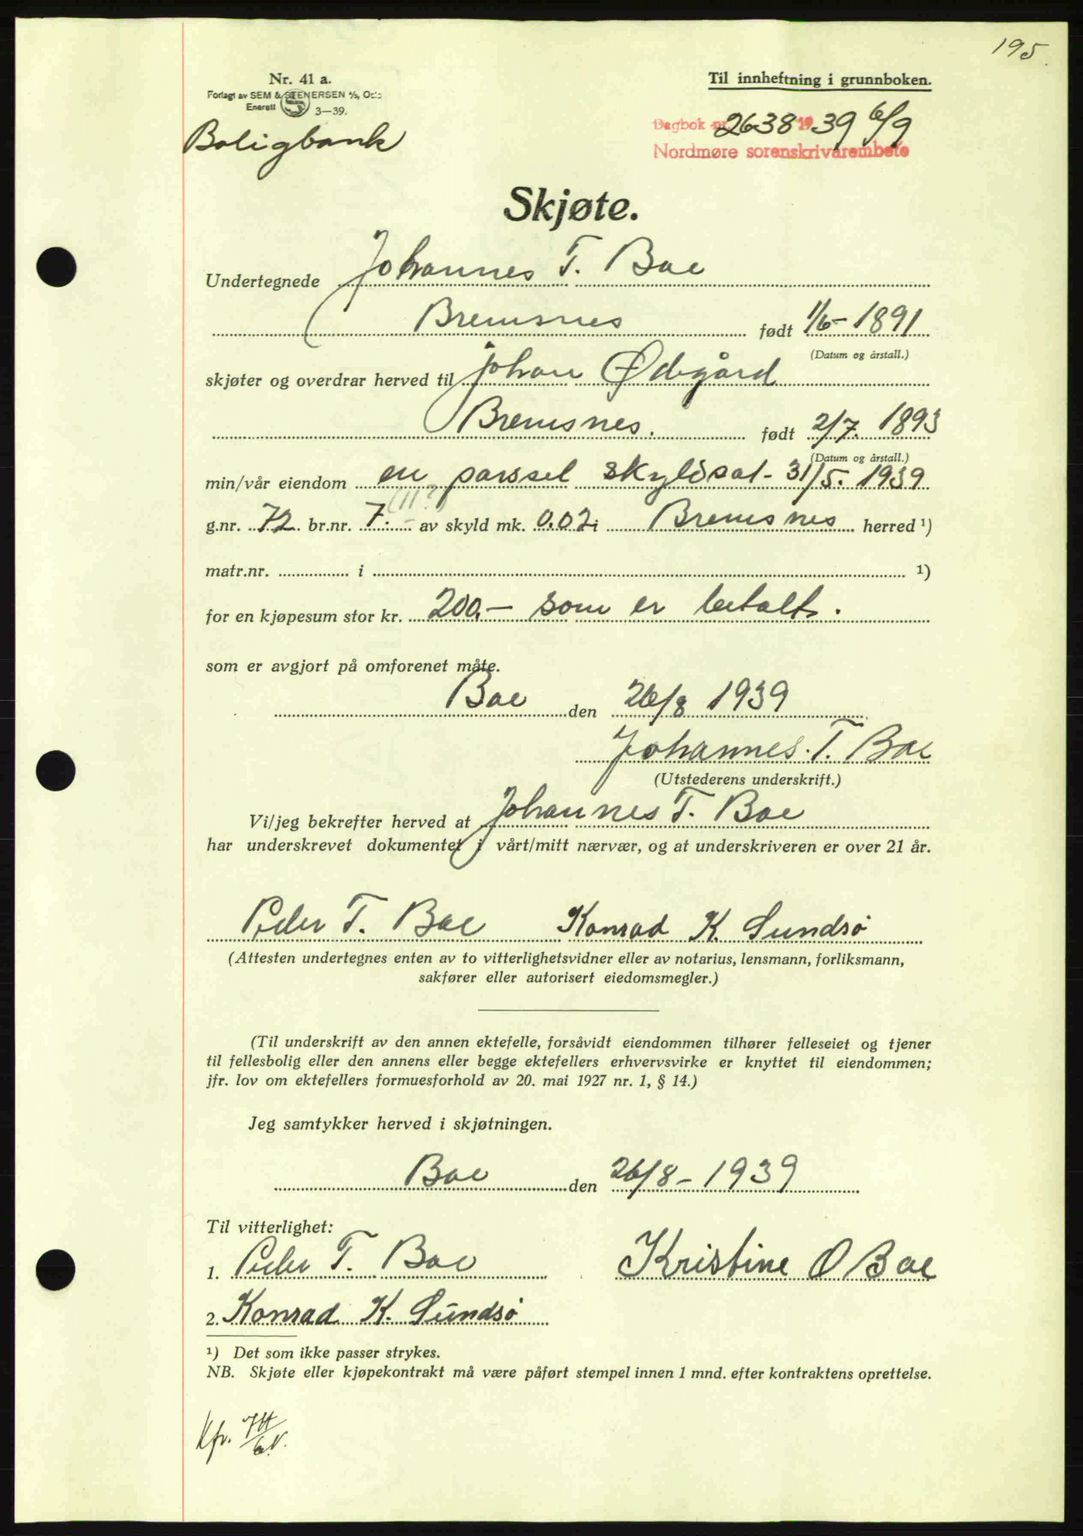 195.
Nr. 41 a.
Forlagt av SEM & STENERSEN A/S, Oslo
Enerett 3—39.
Til innheftning i grunnboken.
Boligbank
Dagbok nr. 2638 1939 6/9
Nordmøre sorenskrivarembete
Skjøte.
Undertegnede Johannes T. Boe
Bremsnes født 1/6- 1891
(Datum og årstall.)
skjøter og overdrar herved til Johan Ødegård
Bremsnes. født 2/7. 1893
(Datum og årstall.)
min/vår eiendom en parssel skyldsat 31/5. 1939
(11?)
g.nr. 72 br.nr. 7. av skyld mk. 0.02 i Bremsnes herred ¹)
matr.nr. i ¹)
for en kjøpesum stor kr. 200,- som er betalt.
som er avgjort på omforenet måte.
Boe den 26/8 1939
Johannes T. Boe
(Utstederens underskrift.)
Vi/jeg bekrefter herved at Johannes T. Boe
har underskrevet dokumentet i vårt/mitt nærvær, og at underskriveren er over 21 år.
Peder T. Boe Konrad K. Sundsø
(Attesten undertegnes enten av to vitterlighetsvidner eller av notarius, lensmann, forliksmann,
sakfører eller autorisert eiedomsmegler.)
(Til underskrift av den annen ektefelle, forsåvidt eiendommen tilhører felleseiet og tjener
til fellesbolig eller den annens eller begge ektefellers erhvervsvirke er knyttet til eiendommen;
jfr. lov om ektefellers formuesforhold av 20. mai 1927 nr. 1, § 14.)
Jeg samtykker herved i skjøtningen.
Boe den 26/8 - 1939
Til vitterlighet:
1. Peder T. Boe Kristine O Boe
2. Konrad K. Sundsø
¹) Det som ikke passer strykes.
NB. Skjøte eller kjøpekontrakt må være påført stempel innen 1 mnd. efter kontraktens oprettelse.